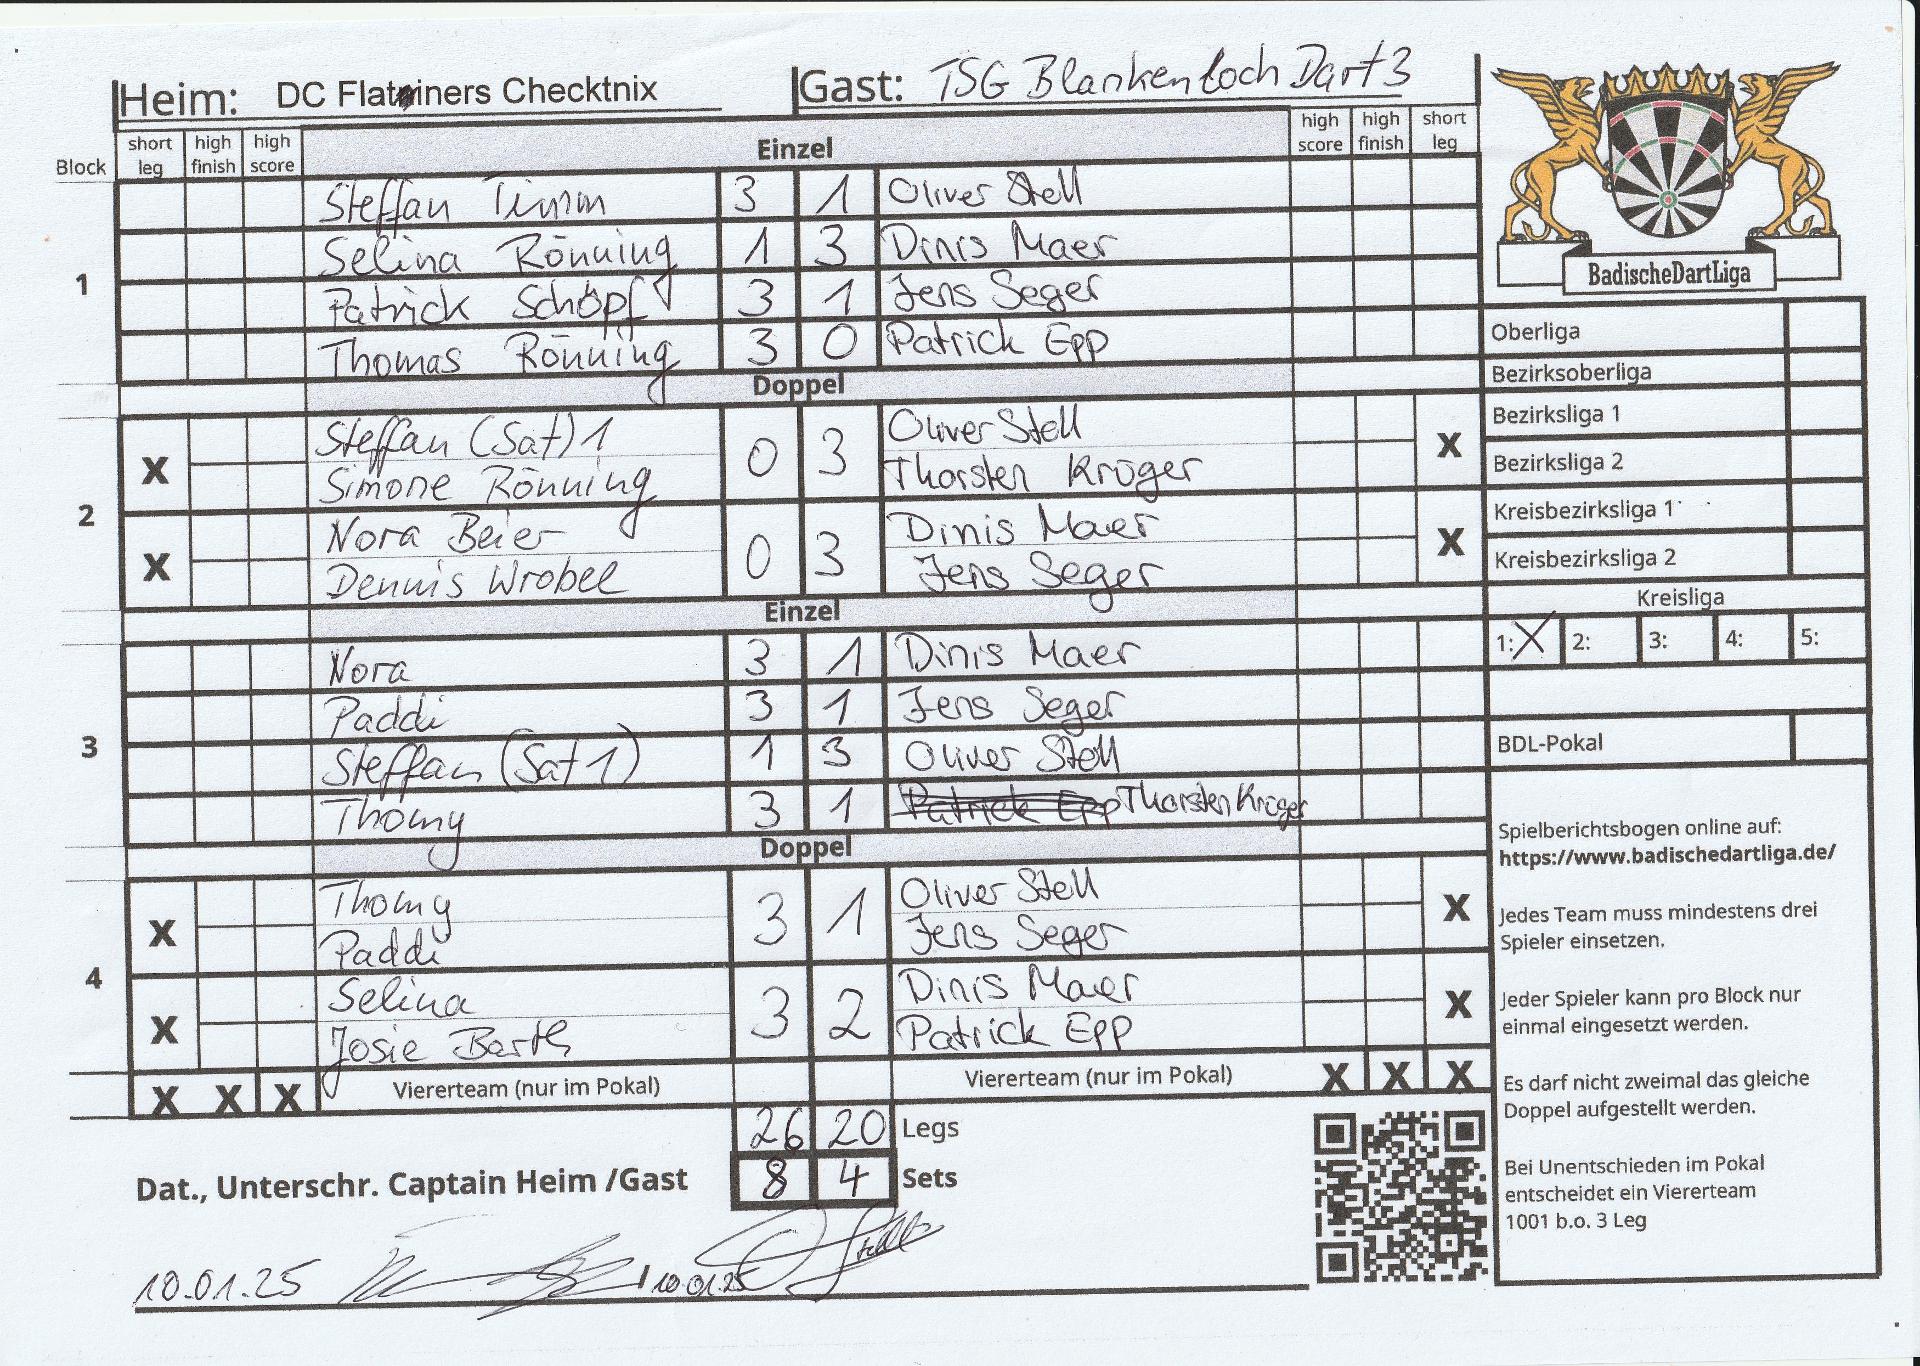 Heim: DC Flatliners Checktnix Gast: TSG Blankenloch Dart 3
Block short leg high finish high score Einzel high score high finish short leg
1
Steffan Timm 3 1 Oliver Stell
Selina Rönning 1 3 Dinis Maer
Patrick Schöpf 3 1 Jens Seger
Thomas Rönning 3 0 Patrick Epp
Doppel
2
X Steffan (Sat) 1 0 3 Oliver Stell X
Simone Rönning Thorsten Krüger
X Nora Beier 0 3 Dinis Maer X
Dennis Wrobel Jens Seger
Einzel
3
Nora 3 1 Dinis Maer
Paddi 3 1 Jens Seger
Steffan (Sat 1) 1 3 Oliver Stell
Thomy 3 1 Patrick Epp Thorsten Krüger
Doppel
4
X Thomy 3 1 Oliver Stell X
Paddi Jens Seger
X Selina 3 2 Dinis Maer X
Josie Barth Patrick Epp
X X X Viererteam (nur im Pokal) Viererteam (nur im Pokal) X X X
26 20 Legs
Dat., Unterschr. Captain Heim /Gast 8 4 Sets
10.01.25 / 10.01.25
BadischeDartLiga
Oberliga
Bezirksoberliga
Bezirksliga 1
Bezirksliga 2
Kreisbezirksliga 1
Kreisbezirksliga 2
Kreisliga
1: X 2: 3: 4: 5:
BDL-Pokal
Spielberichtsbogen online auf:
https://www.badischedartliga.de/
Jedes Team muss mindestens drei
Spieler einsetzen.
Jeder Spieler kann pro Block nur
einmal eingesetzt werden.
Es darf nicht zweimal das gleiche
Doppel aufgestellt werden.
Bei Unentschieden im Pokal
entscheidet ein Viererteam
1001 b.o. 3 Leg